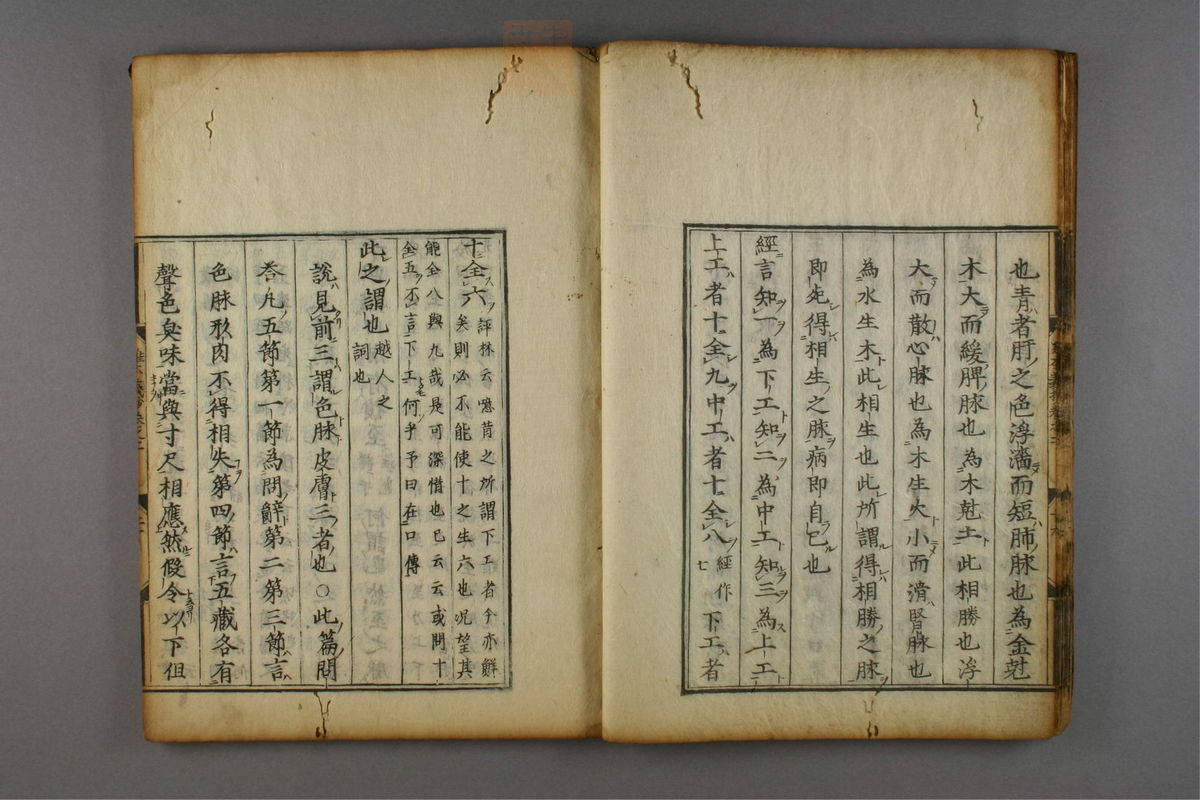 也青者肝之色浮濇而短肺脉也為金尅
木大而緩脾脉也為木尅土此相勝也浮
大而散心脉也為木生火小而滑腎脉也
為水生木此相生也此所謂得相勝之脉
即死得相生之脉病即自已也
經言知一為下工知二為中工知三為上工
上工者十全九中工者十全八經作七下工者
十全六評林云噫昔之所謂下工者今亦鮮
矣則必不能使十之生六也况望其
能全八與九哉是可深惜也已云云或問十
全五不言下工何乎予曰在口傳
此之謂也越人之
詞也
說見前三謂色脉皮膚三者也○此篇問
荅凡五節第一節為問辭第二第三節言
色脉形肉不得相失第四節言五藏各有
聲色臭味當與寸尺相應然假令以下但